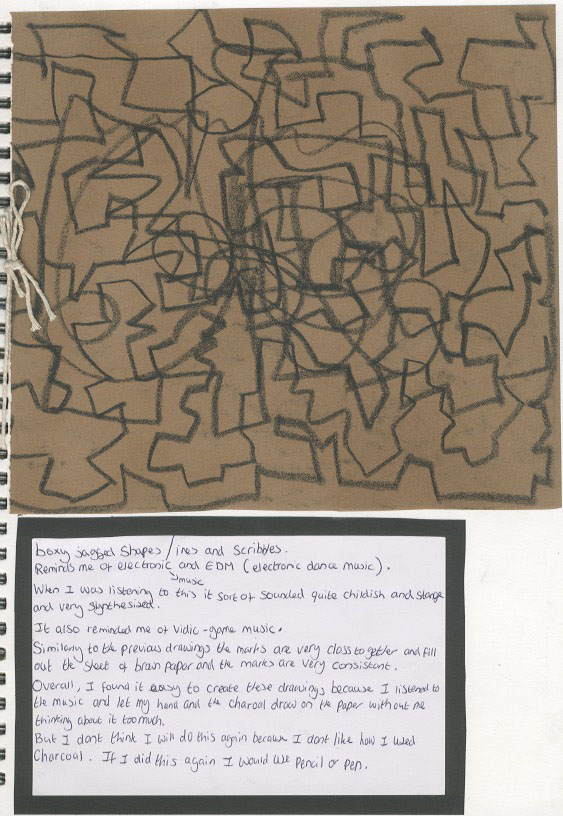 boxy jagged shapes / lines and scribbles.
Reminds me of electronic music and EDM (electronic dance music).
When I was listening to this it sort of sounded quite childish and stange
and very synthesized.
It also reminded me of vidio-game music.
Similarly to the previous drawings the marks are very close together and fill
out the sheet of brain paper and the marks are very consistant.
Overall, I found it easy to create these drawings because I listened to
the music and let my hand and the charcoal draw on the paper without me
thinking about it too much.
But I dont think I will do this again because I dont like how I used
Charcoal. If I did this again I would use pencil or pen.